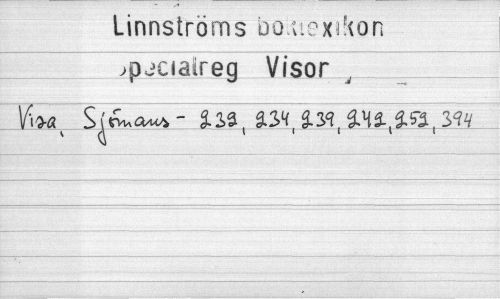 Linnströms boklexikon
Specialreg Visor
Visa, Sjömans - 232, 234, 239, 242, 252, 394